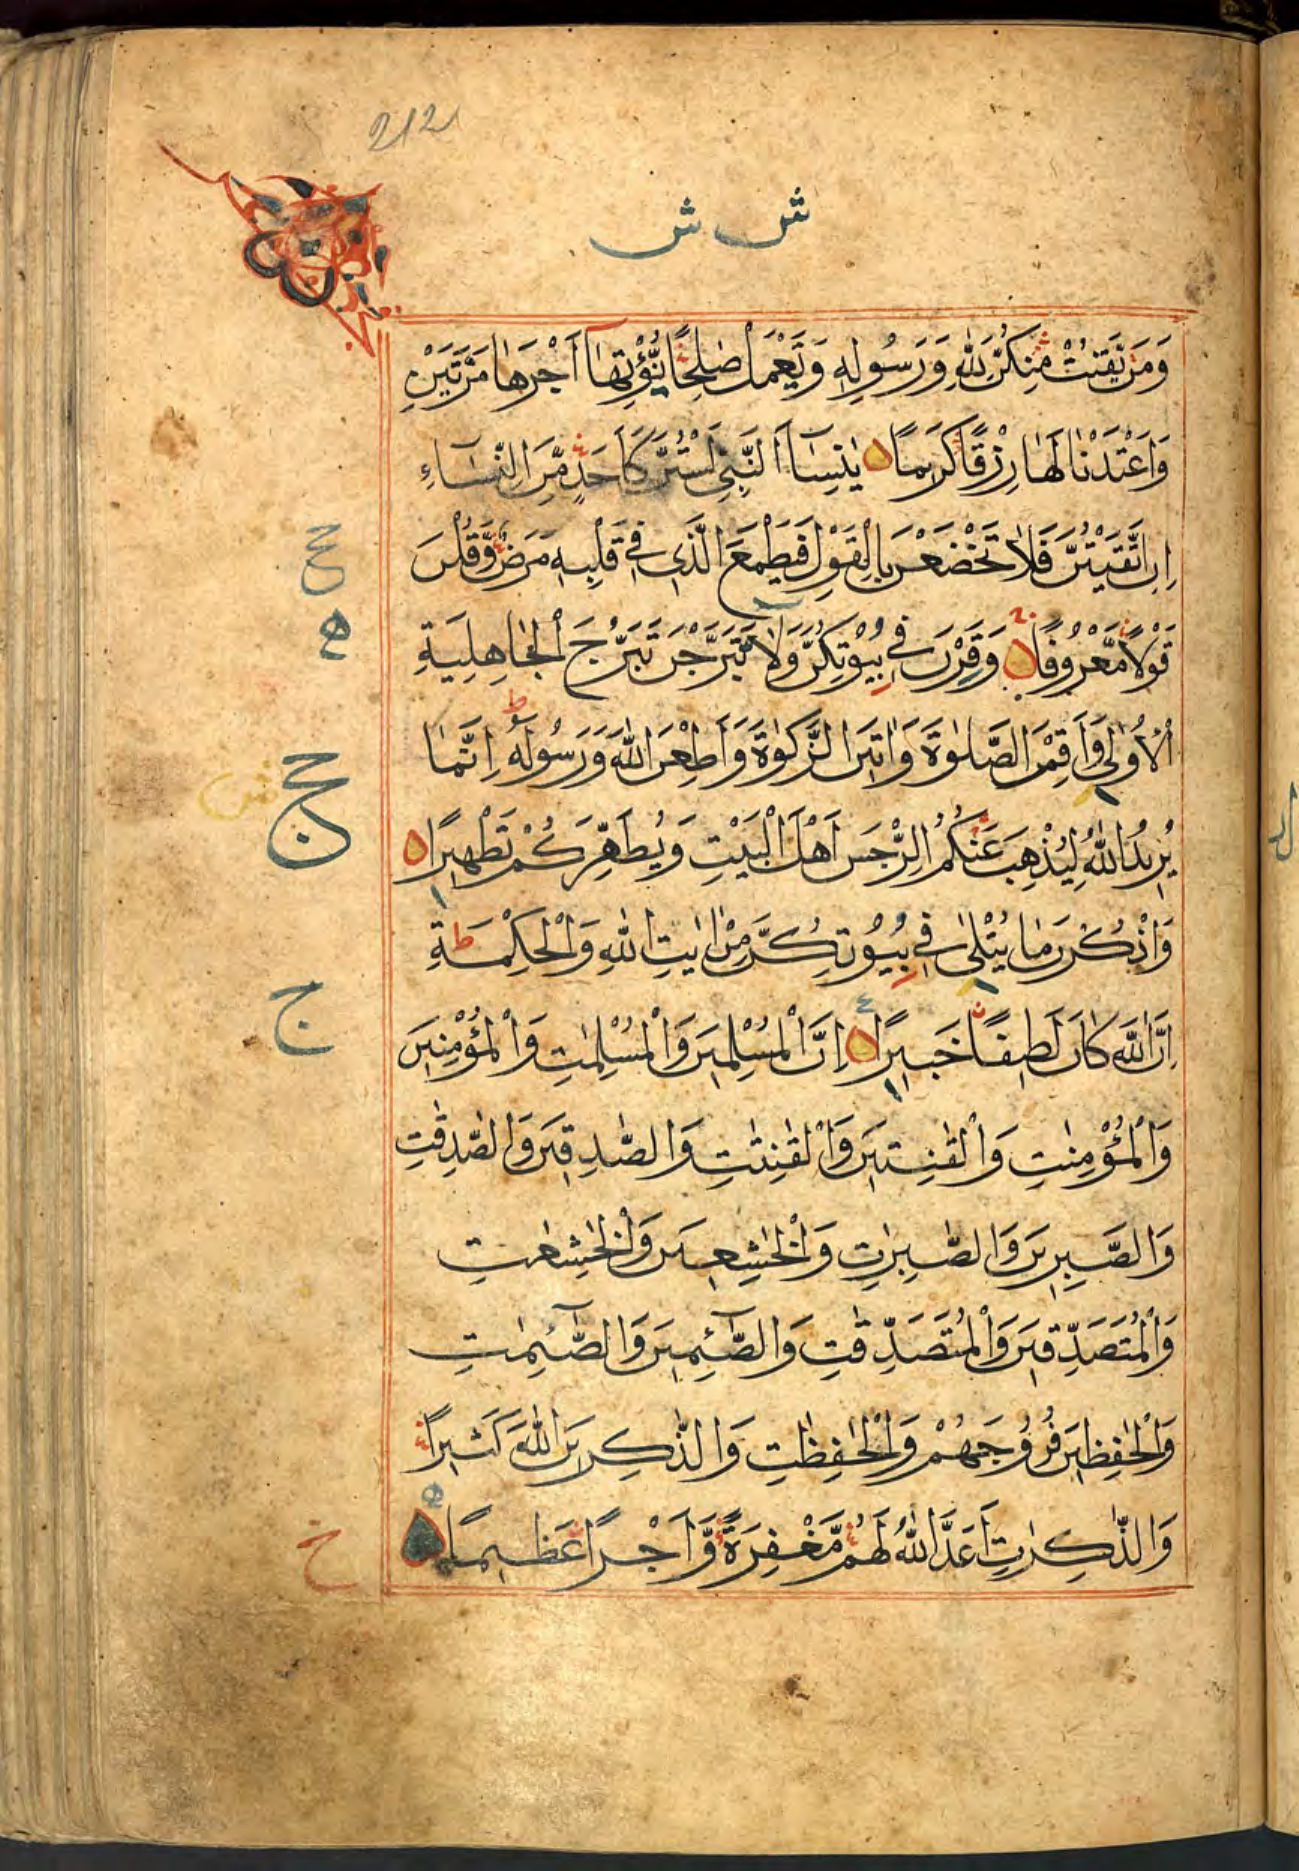 212
ش ش
وَمَنْ يَّقْنُتْ مِنْكُنَّ لِلّٰهِ وَرَسُوْلِهٖ وَتَعْمَلْ صٰلِحًا نُّؤْتِهَآ اَجْرَهَا مَرَّتَيْنِ
وَاَعْتَدْنَا لَهَا رِزْقًا كَرِيمًا يٰنِسَآءَ النَّبِيِّ لَسْتُنَّ كَاَحَدٍ مِّنَ النِّسَآءِ
اِنِ اتَّقَيْتُنَّ فَلَا تَخْضَعْنَ بِالْقَوْلِ فَيَطْمَعَ الَّذِي فِي قَلْبِهٖ مَرَضٌ وَّقُلْنَ
قَوْلًا مَّعْرُوفًا وَقَرْنَ فِي بُيُوْتِكُنَّ وَلَا تَبَرَّجْنَ تَبَرُّجَ الْجَاهِلِيَّةِ
الْاُوْلٰى وَاَقِمْنَ الصَّلٰوةَ وَاٰتِيْنَ الزَّكٰوةَ وَاَطِعْنَ اللّٰهَ وَرَسُوْلَهٗ ط اِنَّمَا
يُرِيْدُ اللّٰهُ لِيُذْهِبَ عَنْكُمُ الرِّجْسَ اَهْلَ الْبَيْتِ وَيُطَهِّرَكُمْ تَطْهِيرًا
وَاذْكُرْنَ مَا يُتْلٰى فِي بُيُوْتِكُنَّ مِنْ اٰيٰتِ اللّٰهِ وَالْحِكْمَةِ ط
اِنَّ اللّٰهَ كَانَ لَطِيفًا خَبِيرًا اِنَّ الْمُسْلِمِيْنَ وَالْمُسْلِمٰتِ وَالْمُؤْمِنِيْنَ
وَالْمُؤْمِنٰتِ وَالْقٰنِتِيْنَ وَالْقٰنِتٰتِ وَالصّٰدِقِيْنَ وَالصّٰدِقٰتِ
وَالصّٰبِرِيْنَ وَالصّٰبِرٰتِ وَالْخٰشِعِيْنَ وَالْخٰشِعٰتِ
وَالْمُتَصَدِّقِيْنَ وَالْمُتَصَدِّقٰتِ وَالصَّآئِمِيْنَ وَالصّٰٓئِمٰتِ
وَالْحٰفِظِيْنَ فُرُوْجَهُمْ وَالْحٰفِظٰتِ وَالذّٰكِرِيْنَ اللّٰهَ كَثِيرًا
وَالذّٰكِرٰتِ اَعَدَّ اللّٰهُ لَهُمْ مَّغْفِرَةً وَّاَجْرًا عَظِيمًا